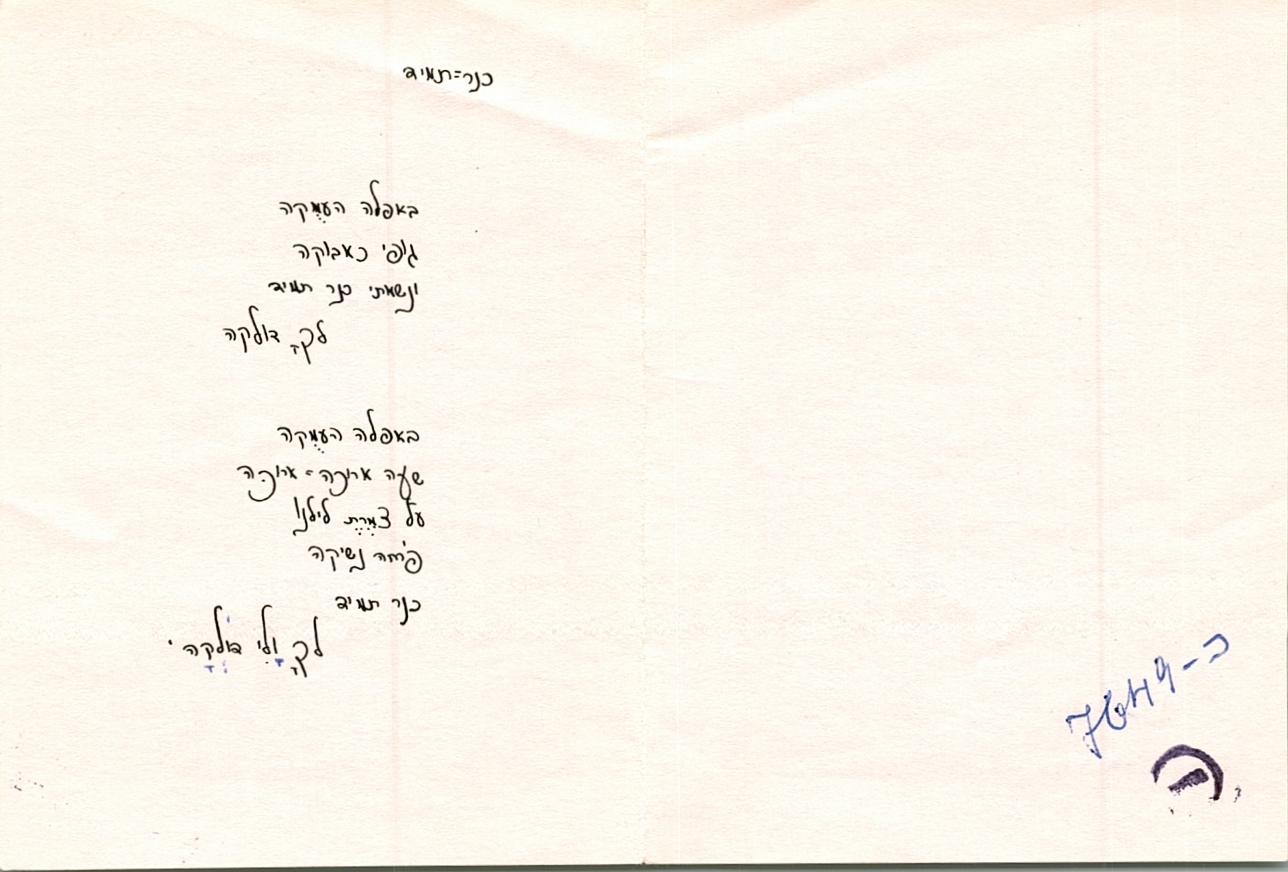 כנר-תמיד
באפלה העמֻקה
גופי כאבוקה
ונשמתי כנר תמיד
לךָ דולקה
באפלה העמֻקה
שעה ארוכה-ארוכּה
על צמֶרֶת לילנו
פּרחה נשיקה
כנר תמיד
לךָ וָלִי דוֹלֵקָה.